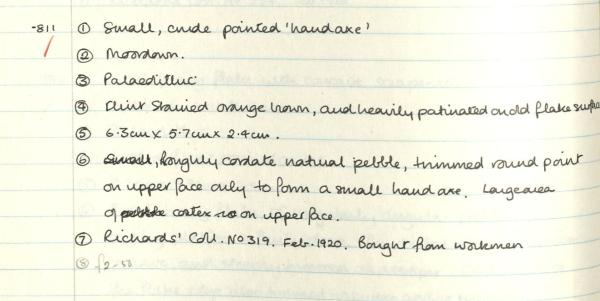 -811 ① Small, crude pointed 'handaxe'
② Moordown.
③ Palaeolithic
④ Flint stained orange brown, and heavily patinated on old flake surface
⑤ 6.3cm x 5.7cm x 2.4cm.
⑥ Small, Roughly cordate natural pebble, trimmed round point
on upper face only to form a small handaxe. Large area
of pebble cortex on upper face.
⑦ Richards' Coll. No 319. Feb. 1920. Bought from workmen
⑧ f2-50